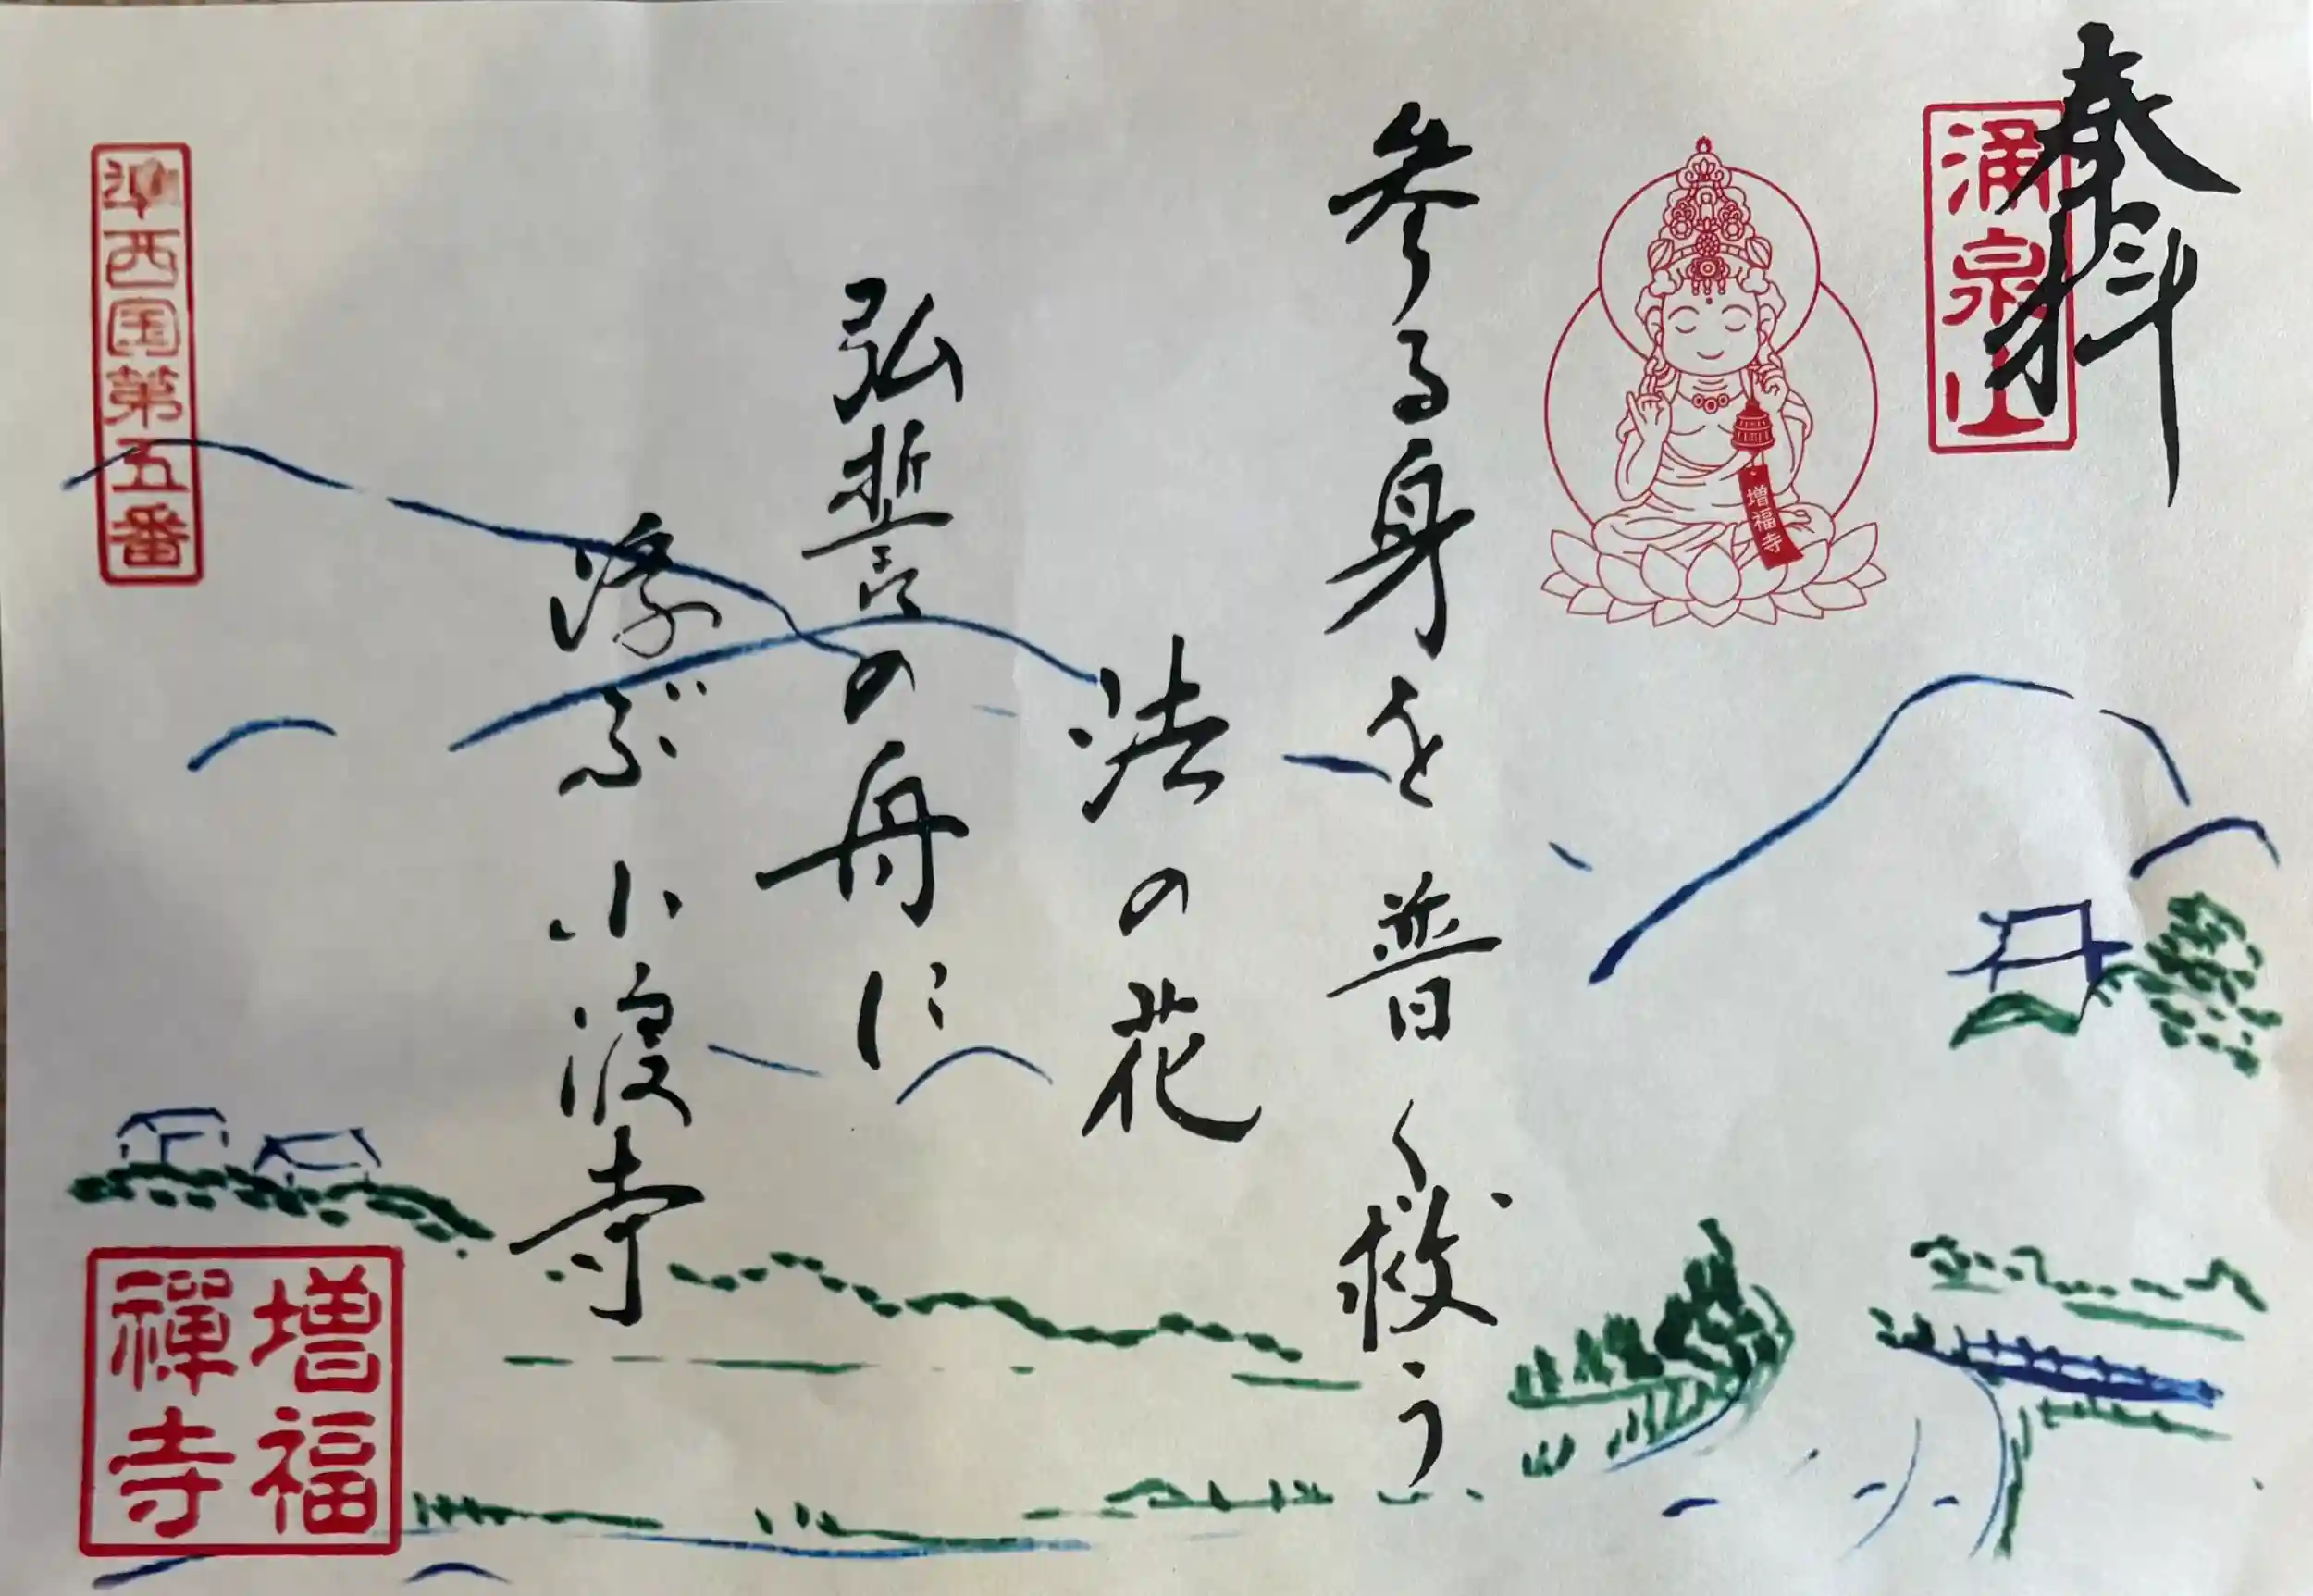 奉拝
涌泉山
増福寺
参る身を普く救う
法の花
弘誓の舟に
浮ぶ小渡寺
準西国第五番
増福
禅寺